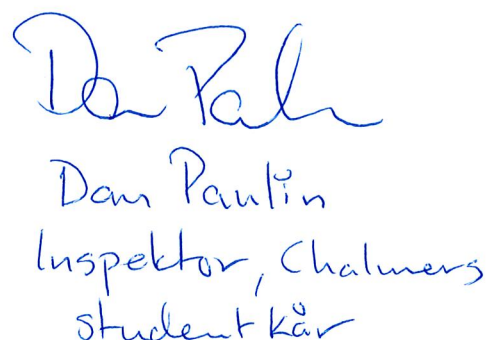 Dan Paulin
Inspektor, Chalmers
studentkår